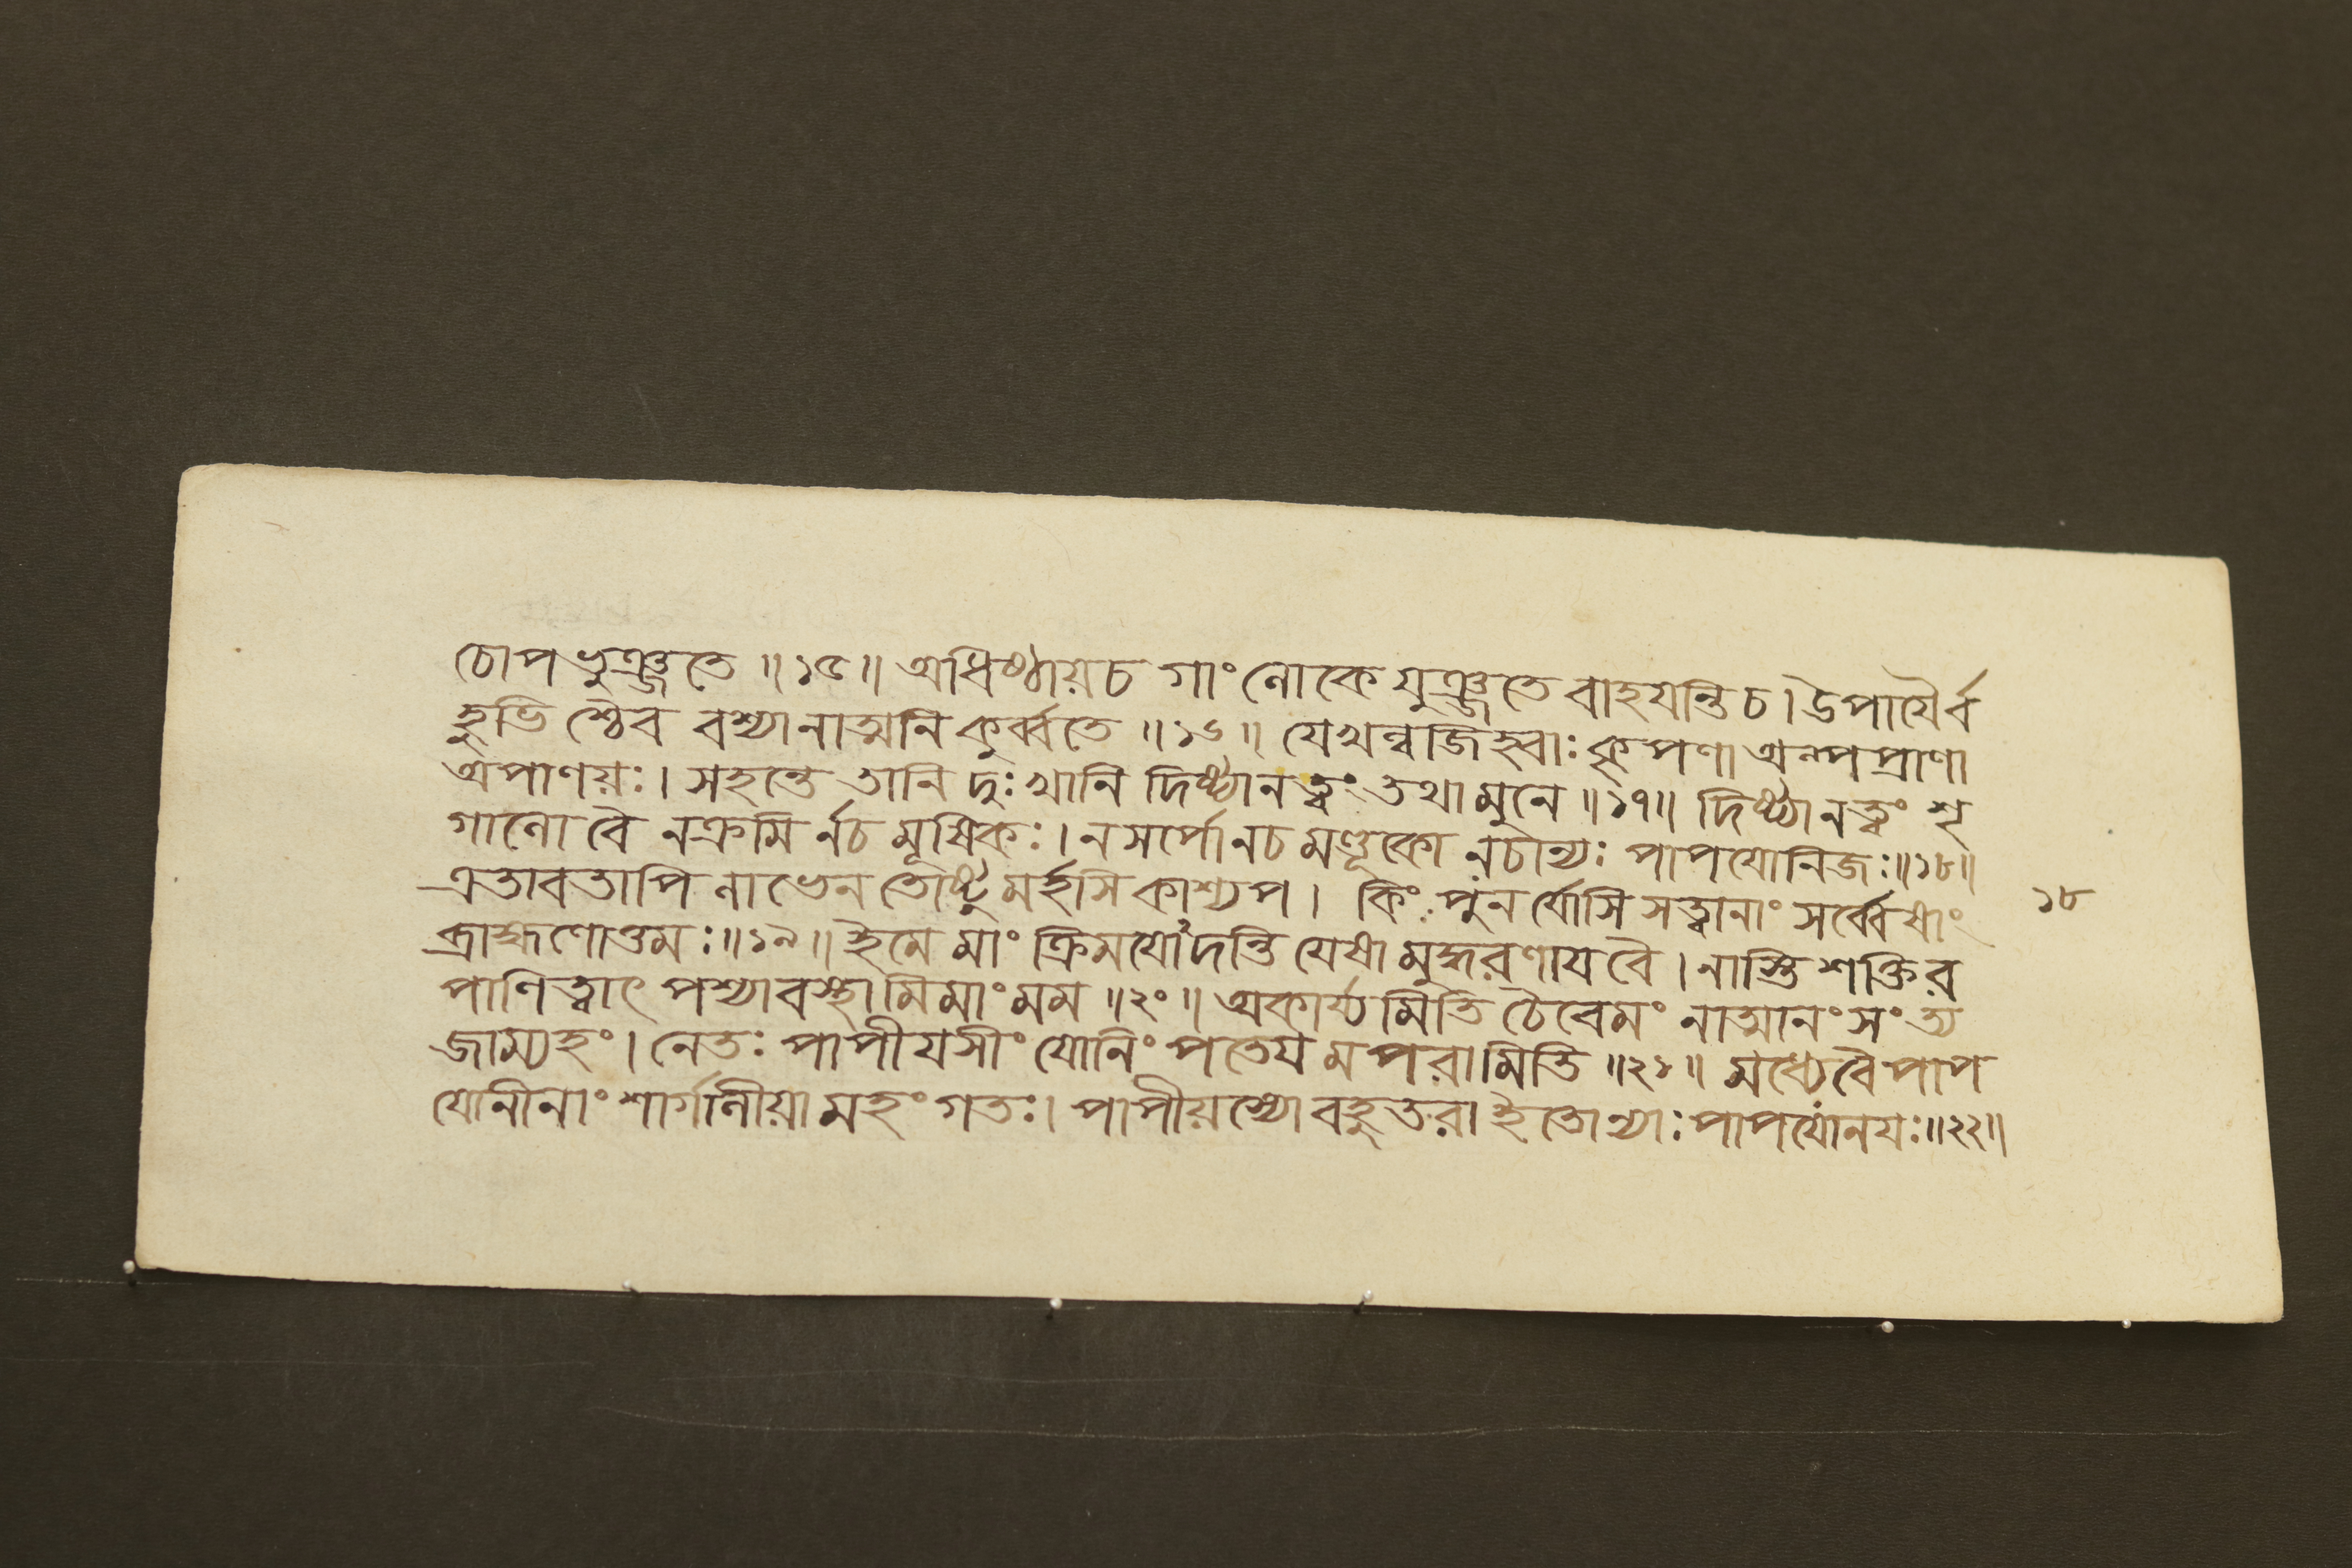 চোপভুঞ্জতে ॥১৫॥ অধিষ্ঠায়চ গাং লোকে যুঞ্জতে বাহযন্তি চ। উপাযৈর্ব
হুভি শ্চৈব বশ্যানাত্মনি কুর্ব্বতে ॥১৬॥ যেখল্বজিহ্বাঃ কৃপণা অল্পপ্রাণা
অপাণয়ঃ। সহন্তে তানি দুঃখানি দিষ্ট্যানত্বং তথা মুনে ॥১৭॥ দিষ্ট্যানত্বং শৃ
গালো বৈ নক্রমি র্নচ মূষিকঃ। ন সর্পো নচ মণ্ডূকো নচান্যঃ পাপযোনিজঃ॥১৮॥
এতাবতাপি লাভেন তোষ্টু মর্হসি কাশ্যপ। কিং পুন র্যোসি সত্ত্বানাং সর্ব্বেষাং
ব্রাহ্মণোত্তমঃ॥১৯॥ ইমে মাং ক্রিমযো২দন্তি যেষা মুদ্ধরণায বৈ। নাস্তি শক্তির
পাণিত্বাৎ পশ্যাবস্থামিমাং মম ॥২০॥ অকার্য্য মিতি চৈবেমং নাত্মানং সংত্য
জাম্যহং। নেতঃ পাপীযসীং যোনিং পতেয মপরামিতি ॥২১॥ মধ্যে বৈ পাপ
যোনীনাং শার্গালীয়া মহং গতঃ। পাপীয়স্যো বহুতরা ইতোন্যাঃ পাপযোনযঃ॥২২॥
১৮